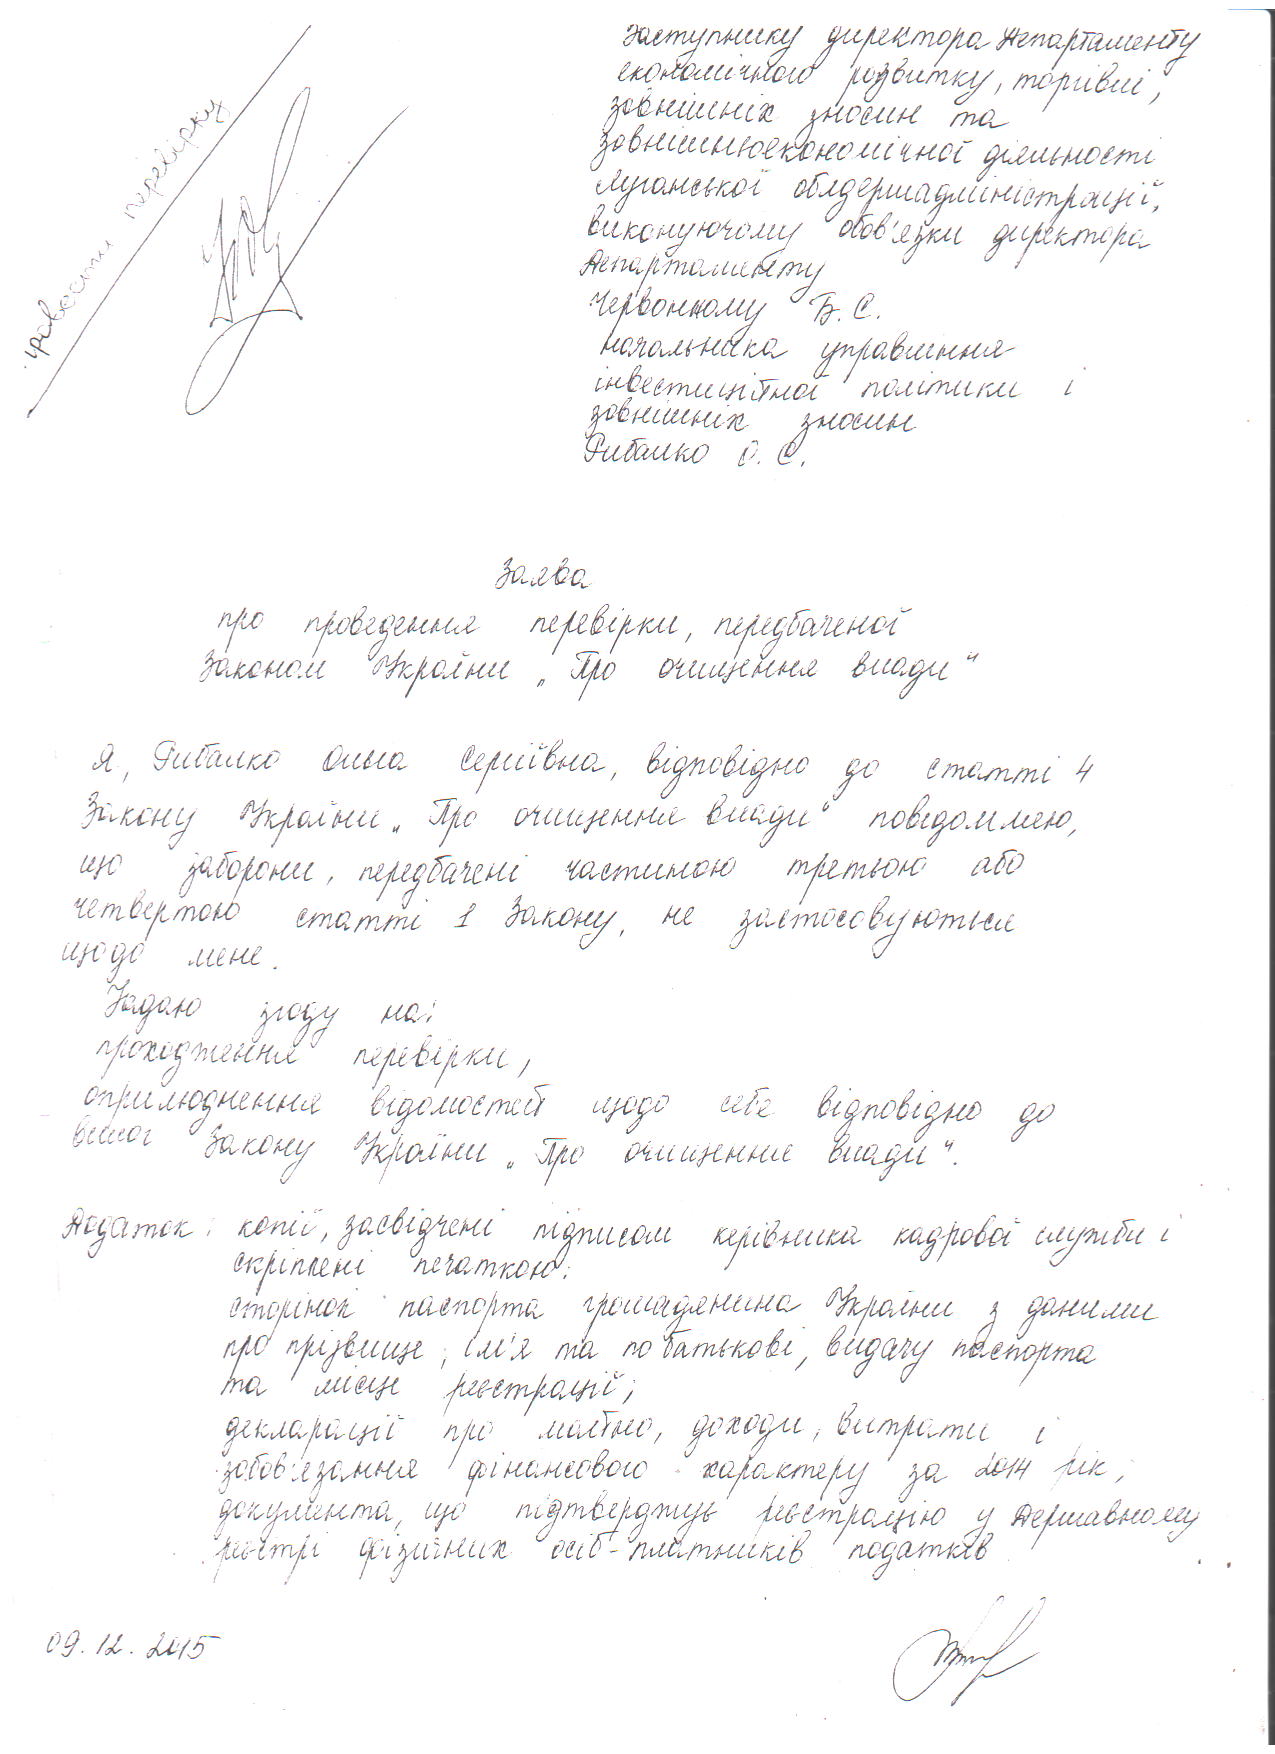 провести перевірку
Заступнику директора Департаменту
економічного розвитку, торгівлі,
зовнішніх зносин та
зовнішньоекономічної діяльності
Луганської облдержадміністрації,
виконуючому обов'язки директора
Департаменту
Червонному Б. С.
начальника управління
інвестиційної політики і
зовнішніх зносин
Рибалко О. С.
Заява
про проведення перевірки, передбаченої
Законом України „Про очищення влади“
Я, Рибалко Ольга Сергіївна, відповідно до статті 4
Закону України „Про очищення влади“ повідомляю,
що заборони, передбачені частиною третьою або
четвертою статті 1 Закону, не застосовуються
щодо мене.
Надаю згоду на:
проходження перевірки,
оприлюднення відомостей щодо себе відповідно до
вимог Закону України „Про очищення влади“.
Додаток: копії, засвідчені підписом керівника кадрової служби і
скріплені печаткою:
сторінок паспорта громадянина України з даними
про прізвище, ім'я та по батькові, видачу паспорта
та місце реєстрації;
декларації про майно, доходи, витрати і
зобов'язання фінансового характеру за 2014 рік;
документа, що підтверджує реєстрацію у Державному
реєстрі фізичних осіб-платників податків
09.12.2015